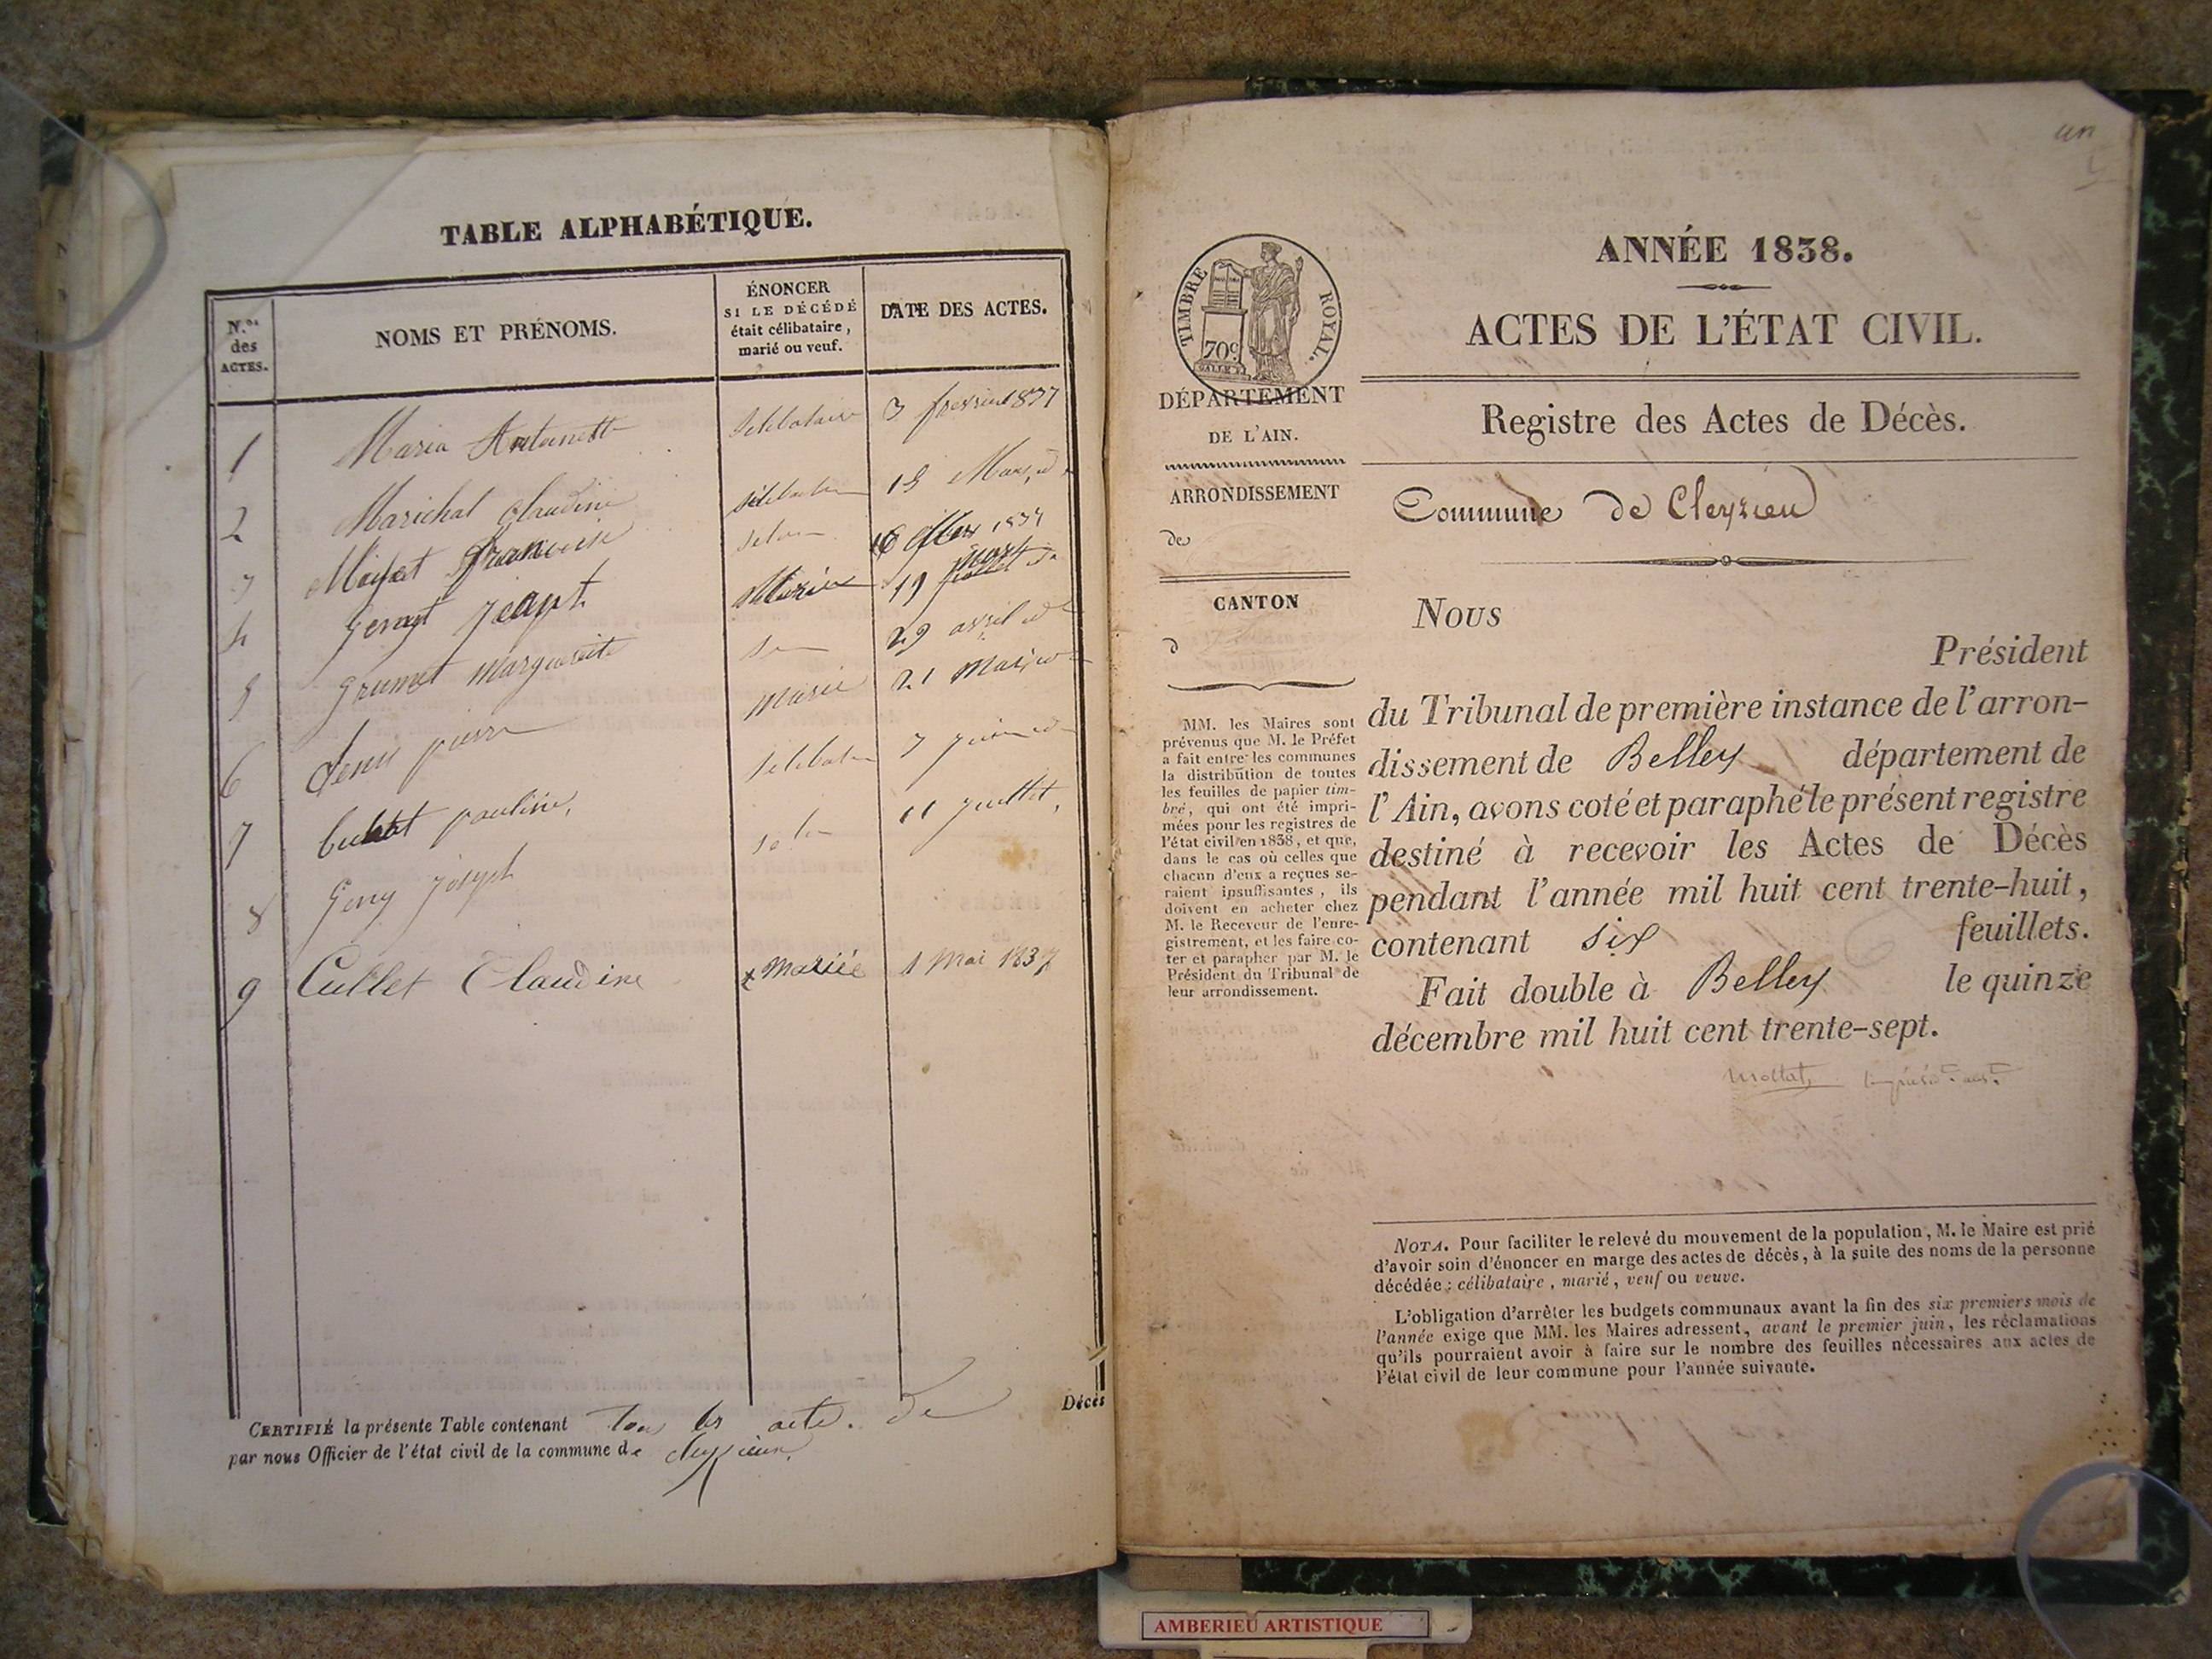 TABLE ALPHABÉTIQUE.
N.os des ACTES.
NOMS ET PRÉNOMS.
ÉNONCER
SI LE DÉCÉDÉ
était célibataire,
marié ou veuf.
DATE DES ACTES.
1 Maria Antoinette 1837
2 Marichal Claudine 15 Mars
3 1837
4 19
5 Grumet Marguerite 29 avril
6 pierre Marié 21
7 pauline, 7
8 Joseph 11 Juillet,
9 Cullet Claudine Mariée 1 Mai 1837
CERTIFIÉ la présente Table contenant tous les acte. de Décès
par nous Officier de l'état civil de la commune de cleyzieux
un
TIMBRE ROYAL.
70c
DÉPARTEMENT
DE L'AIN.
ARRONDISSEMENT
de
CANTON
d
MM. les Maires sont
prévenus que M. le Préfet
a fait entre les communes
la distribution de toutes
les feuilles de papier tim-
bré, qui ont été impri-
mées pour les registres de
l'état civil en 1838, et que,
dans le cas où celles que
chacun d'eux a reçues se-
raient insuffisantes, ils
doivent en acheter chez
M. le Receveur de l'enre-
gistrement, et les faire co-
ter et parapher par M. le
Président du Tribunal de
leur arrondissement.
ANNÉE 1838.
ACTES DE L'ÉTAT CIVIL.
Registre des Actes de Décès.
Commune de Cleyzieu
Nous
Président
du Tribunal de première instance de l'arron-
dissement de Belley département de
l'Ain, avons coté et paraphé le présent registre
destiné à recevoir les Actes de Décès
pendant l'année mil huit cent trente-huit,
contenant six feuillets.
Fait double à Belley le quinze
décembre mil huit cent trente-sept.
NOTA. Pour faciliter le relevé du mouvement de la population, M. le Maire est prié
d'avoir soin d'énoncer en marge des actes de décès, à la suite des noms de la personne
décédée : célibataire, marié, veuf ou veuve.
L'obligation d'arrêter les budgets communaux avant la fin des six premiers mois de
l'année exige que MM. les Maires adressent, avant le premier juin, les réclamations
qu'ils pourraient avoir à faire sur le nombre des feuilles nécessaires aux actes de
l'état civil de leur commune pour l'année suivante.
AMBERIEU ARTISTIQUE